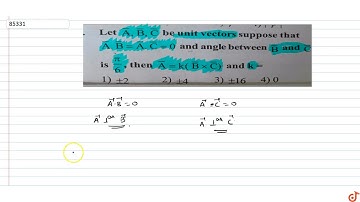 85331
Let A, B, C be unit vectors suppose that
A.B = A.C = 0 and angle between B and C
is π/6 then A = k(B × C) and k =
1) ±2 2) ±4 3) ±16 4) 0
A⃗·B⃗ = 0 A⃗·C⃗ = 0
A⃗ ⊥ar B⃗. A⃗ ⊥ar C⃗